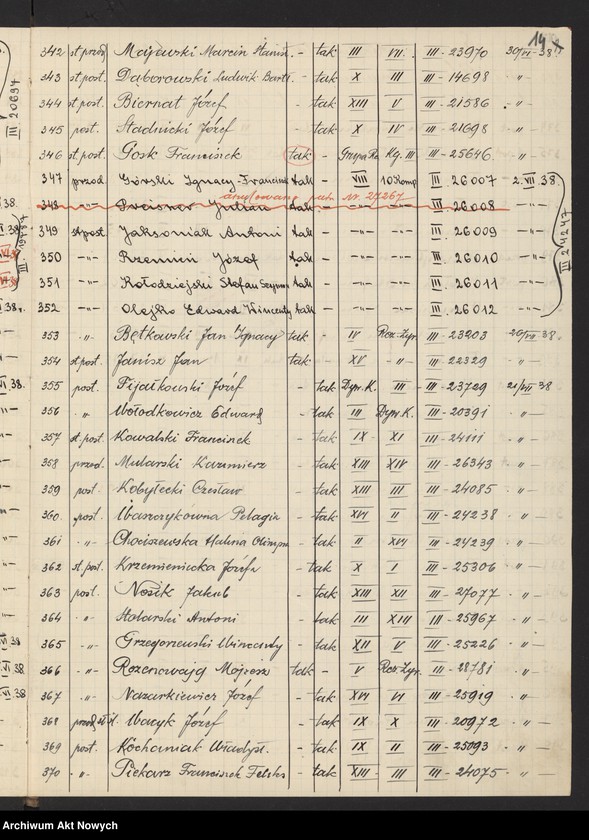 14
342 st. przod. Majewski Marcin Stanisł. - tak III VII. III - 23970 30/VI - 38.
343 st post. Dąborowski Ludwik Bartł. - tak X III III - 14698 - " -
344 st post. Biernat Józef - tak XIII V III - 21586 . - " -
345 post. Stadnicki Józef - tak X IV III - 21698 - " -
346 st. post. Gosk Franciszek tak - Grupa Rez. Kg. III III - 25646. - " -
347 przod. Górski Ignacy-Franciszek tak VIII 10 Komp III. 26007 2. VII 38.
anulowano
348 - " - Julian tak - " - - " - III. 26008 - " -
349 st. post Jaksoniak Antoni tak - " - - " - III. 26009 - " -
350 - " - Rzemień Józef tak - " - - " - III. 26010 - " -
351 - " - Kołodziejski Stefan tak - " - - " - III. 26011 - " -
352 - " - Olejko Edward Wincenty tak - " - - " - III. 26012 - " -
III 24247
353 . " . Bętkowski Jan Ignacy tak - IV Rez. Żyr. III - 23203 20/VII - 38.
354 st post. Janisz Jan tak - XV - " - III - 22329 - " -
355 post. Fijałkowski Józef - tak Dyw. K. III III - 23729 21/VII - 38
356 . " Wołodkowicz Edward - tak III Dyw. K. III - 20391 . " -
357 st. post. Kowalski Franciszek - tak IX XI III - 24111 . " -
358 przod. Mularski Kazimierz - tak XIII XIV III - 26343 . " -
359 post. Kobyłecki Czesław - tak XIII III III - 24085 . " -
360. post. Pelagia - tak XVI II III - 24238 . " -
361 . " - Chociszewska Halina Olimpia - tak II XVI III - 24239 . " -
362 st. post. Krzemieniecka Józefa - tak X I III - 25306 . " -
363 post. Nosik Jakub - tak XIII XII III - 27077 . " -
364 . " Stolarski Antoni - tak III XIII III - 25967 . " -
365 . " - Grzegorzewski Wincenty - tak XII V III - 25226 . " -
366 - " - Mojżesz tak - V Rez. Żyr. III - 28781 . " -
367 . " . Nazarkiewicz Józef - tak XVI VI III - 25919 . " -
368 Józef - tak IX X III - 20972 . " -
369 post. Kochaniak Władysł. - tak IX II III - 25093 . " -
370 . " . Piekarz Franciszek Feliks - tak XIII III III - 24075 . " -
Archiwum Akt Nowych